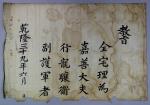 敎旨
全宅理爲
嘉善大夫
行龍驤衛
副護軍者
乾隆二十九年六月